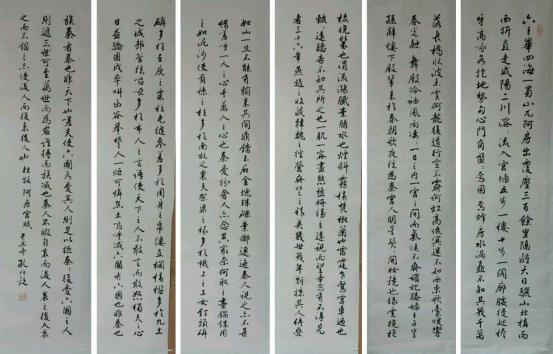 六王畢四海一蜀山兀阿房出覆壓三百餘里隔離天日驪山北構而
西折直走咸陽二川溶溶流入宮牆五步一樓十步一閣廊腰縵迴檐
牙高啄各抱地勢鉤心鬥角盤盤焉囷囷焉蜂房水渦矗不知其幾千萬
落長橋臥波未雲何龍複道行空不霽何虹高低冥迷不知西東歌臺暖響
春光融融舞殿冷袖風雨淒淒一日之內一宮之間而氣候不齊妃嬪媵嬙王子皇
孫辭樓下殿輦來於秦朝歌夜弦為秦宮人明星熒熒開妝鏡也綠雲擾擾
梳曉鬟也渭流漲膩棄脂水也煙斜霧橫焚椒蘭也雷霆乍驚宮車過也
轆轆遠聽杳不知其所之也一肌一容盡態極妍縵立遠視而望幸焉有不得見
者三十六年燕趙之收藏韓魏之經營齊楚之精英幾世幾年剽掠其人倚疊
如山一旦不能有輸來其間鼎鐺玉石金塊珠礫棄擲邐迤秦人視之亦不甚
惜嗟乎一人之心千萬人之心也秦愛紛奢人亦念其家奈何取之盡錙銖用
之如泥沙使負棟之柱多於南畝之農夫架梁之椽多於機上之工女釘頭磷
磷多於在庾之粟粒瓦縫參差多於周身之帛縷直欄橫檻多於九土
之城郭管弦嘔啞多於市人之言語使天下之人不敢言而敢怒獨夫之心
日益驕固戍卒叫函谷舉楚人一炬可憐焦土嗚呼滅六國者六國也非秦也
族秦者秦也非天下也嗟夫使六國各愛其人則足以拒秦秦復愛六國之人
則遞三世可至萬世而為君誰得而族滅也秦人不暇自哀而後人哀之後人哀
之而不鑑之亦使後人而復哀後人也 杜牧阿房宮賦